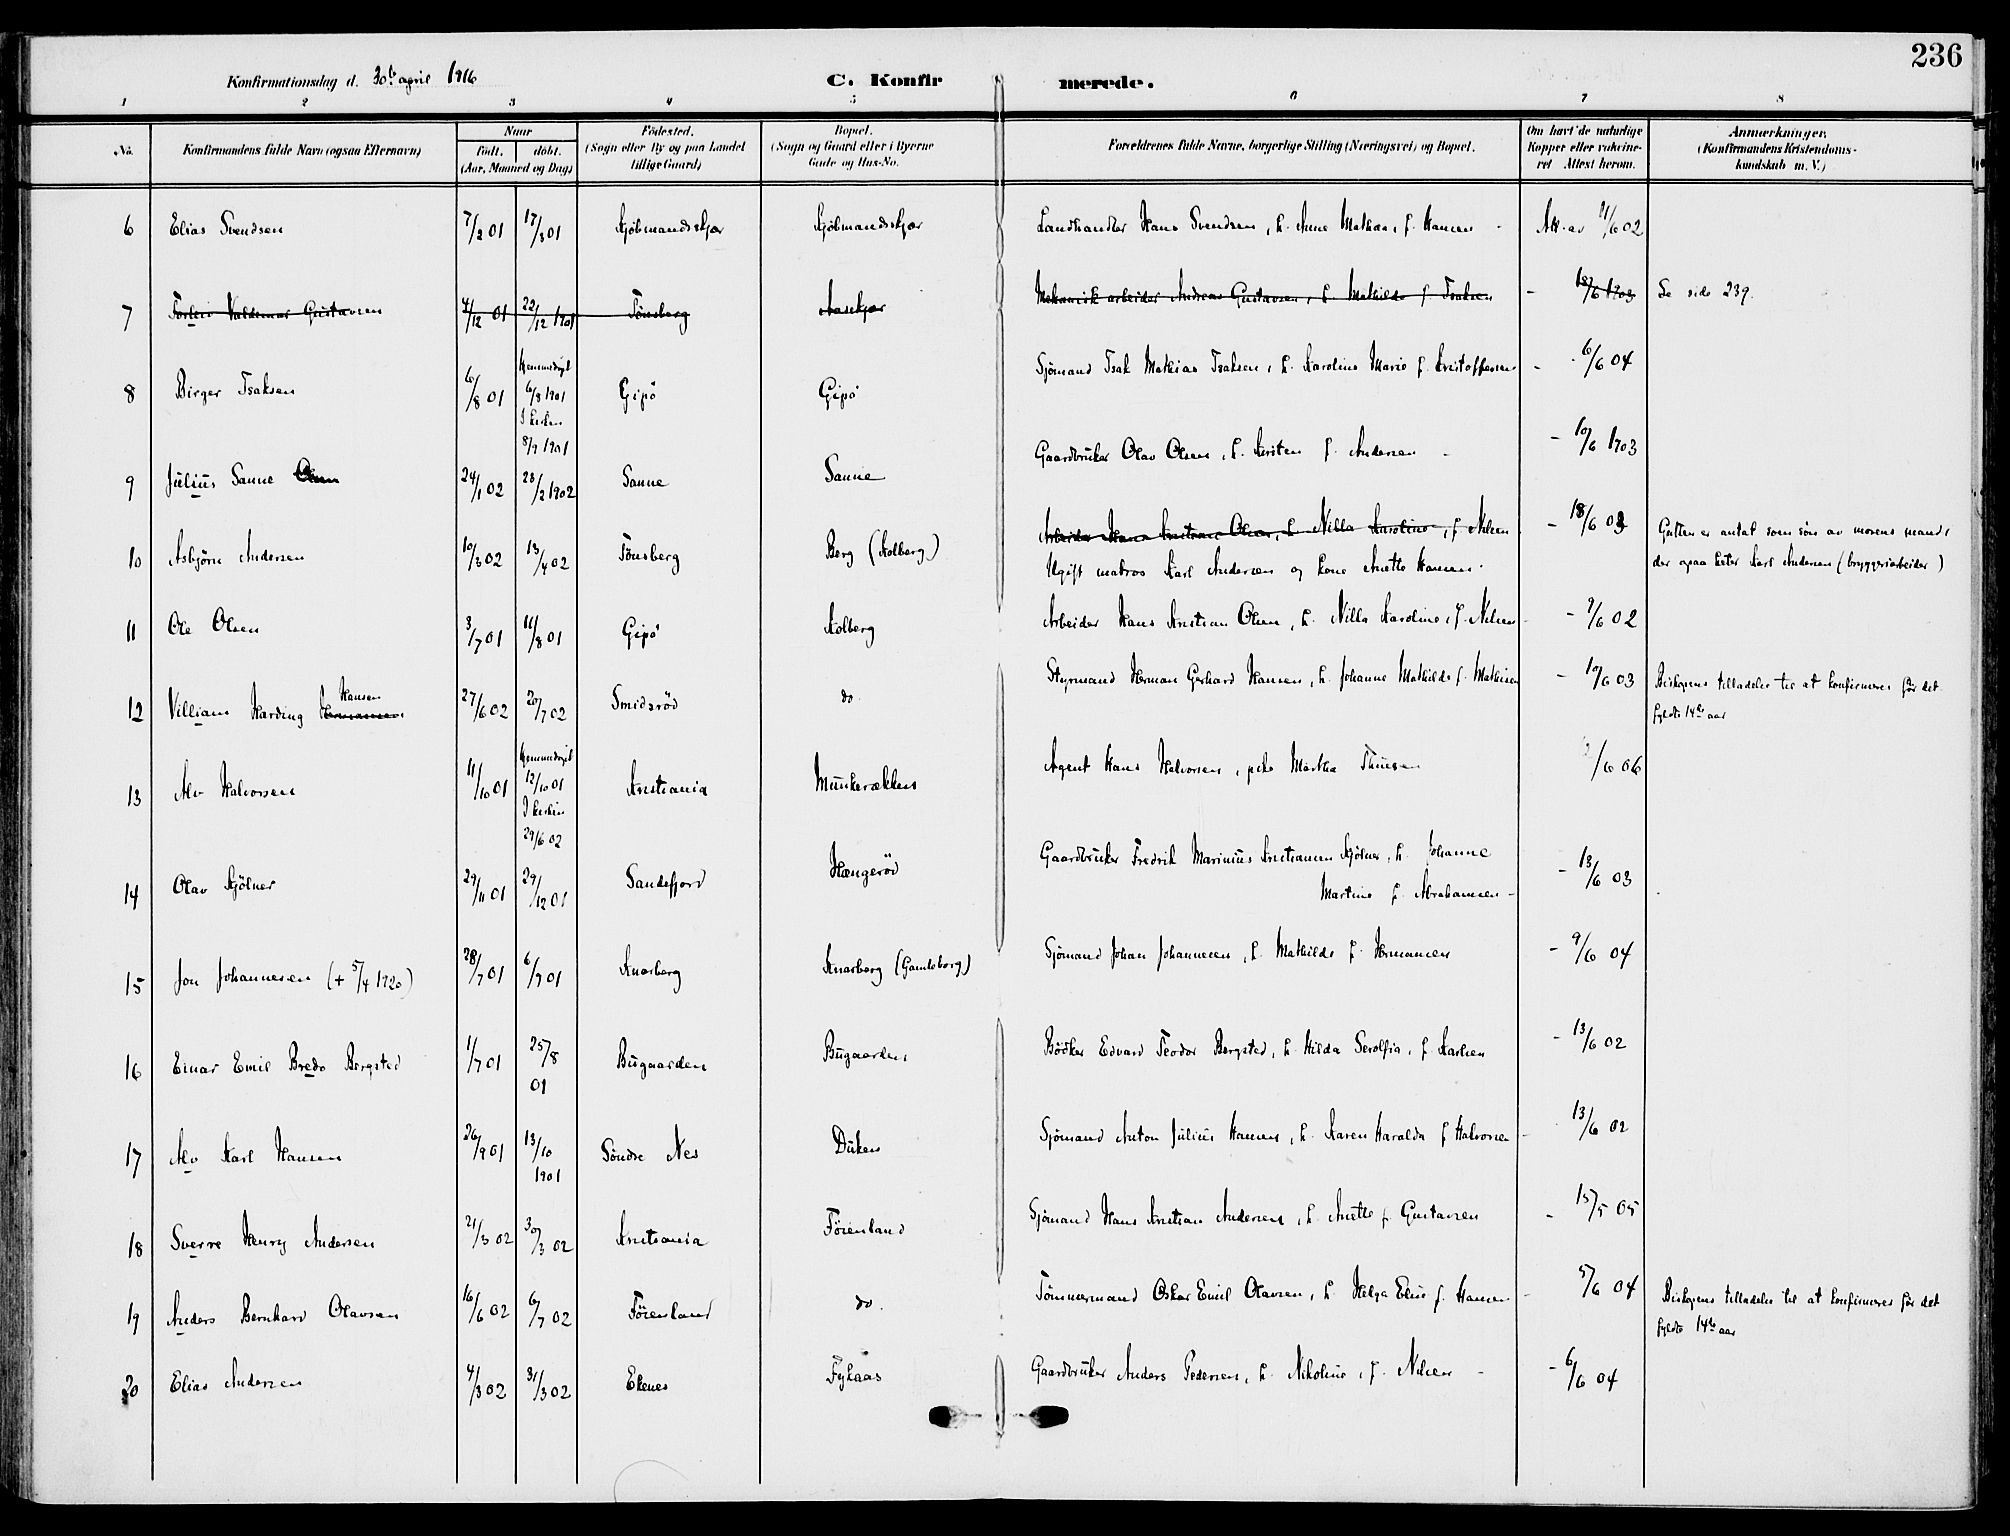 236
Konfirmationsdag d. 30te april 1916
C. Konfirmerede.
1 2 3 4 5 6 7 8
No. Konfirmandens fulde Navn (ogsaa Efternavn) Naar født. døbt. (Aar, Maaned og Dag) Fødested. (Sogn eller By og paa Landet tillige Gaard) Bopæl. (Sogn og Gaard eller i Byerne Gade og Hus-No. Forældrenes fulde Navne, borgerlige Stilling (Næringsvei) og Bopæl. Om havt de naturlige Kopper eller vakcineret Attest herom. Anmærkninger. (Konfirmandens Kristendomskundskab m. V.)
6 Elias Svendsen 7/2 01 17/3 01 Kjøbmandskjær Kjøbmandskjær Landhandler Hans Svendsen, h. Anne Mathea, f. Hansen - Att. av 11/6 02
7 Torleiv Valdemar Gustavsen 4/12 01 22/12 1901 Tönsberg Aasekjær Mekanisk arbeider Andreas Gustavsen, h. Mathilde f. Isaksen - 18/6 1903 Se side 239.
8 Birger Isaksen 6/8 01 Hjemmedøpt 6/8 1901 I kirken 8/9 1901 Gipö Gipö Sjömand Isak Mathias Isaksen, h. Karoline Marie f. Kristoffersen - 6/6 04
9 Julius Sanne Olsen 24/1 02 23/2 1902 Sanne Sanne Gaardbruker Olav Olsen, h. Kirsten f. Andersen - - 10/6 1903
10 Asbjörn Andersen 10/3 02 13/4 02 Tönsberg Berg (Kolberg) Arbeider Hans Kristian Olsen, h. Nilla Karoline, f. Nilsen - 18/6 03 Gutten er antat som sön av morens mand,
Ugift matros Karl Andersen og kone Anette Hansen. der ogsaa heter Karl Andersen (bryggeriarbeider)
11 Ole Olsen 3/7 01 11/8 01 Gipö Kolberg Arbeider Hans Kristian Olsen, h. Nilla Karoline, f. Nilsen - 9/6 02
12 Villiam Harding Hermansen Hansen 27/6 02 20/7 02 Smidsröd do. Styrmand Herman Gerhard Hansen, h. Johanne Mathilde f. Mathisen - 10/6 03 Biskopens tilladelse til at konfirmeres før det
fyldte 14de aar
13 Alv Halvorsen 11/10 01 Hjemmedøpt 12/10 01 I kirken 29/6 02 Kristiania Munkerækken Agent Hans Halvorsen, pike Martha Thuesen /6 06
14 Olav Kjölner 29/11 01 29/12 01 Sandefjord Hængeröd Gaardbruker Fredrik Marinius Kristiansen Kjölner, h. Johanne
Martine f. Abrahamsen - - 13/6 03
15 Jon Johannesen (+ 5/4 1920) 28/7 01 6/9 01 Knarberg Knarberg (Gamleborg) Sjömand Johan Johannesen, h. Mathilde f. Hermansen - 9/6 04
16 Einar Emil Bredo Bergsted 1/7 01 25/8 01 Bugaarden Bugaarden Bödker Edvard Teodor Bergsted, h. Hilda Serolfia, f. Karlsen - 13/6 02
17 Alv Karl Hansen 26/9 01 13/10 1901 Söndre Nes Duken Sjömand Anton Julius Hansen, h. Karen Haralda f. Halvorsen - 13/6 02
18 Sverre Henry Andersen 21/3 02 30/3 02 Kristiania Föienland Sjömand Hans Kristian Andersen, h. Anette f. Gustavsen - 15/5 05
19 Anders Bernhard Olavsen 16/6 02 6/7 02 Föienland do. Tömmermand Oskar Emil Olavsen, h. Helga Elise f. Hansen - 5/6 04 Biskopens tilladelse til at konfirmeres før det
fyldte 14de aar
20 Elias Andersen 4/3 02 31/3 02 Ekenes Fykaas Gaardbruker Anders Pedersen, h. Nikoline, f. Nilsen - - 6/6 04